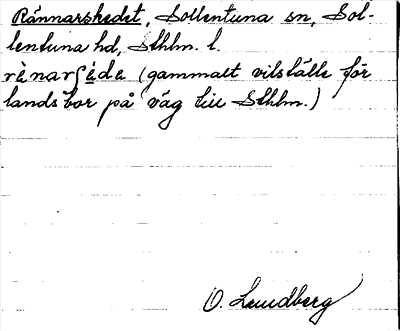 Rännarskedet, Sollentuna sn, Sol-
lentuna hd, Sthlm. l.
rènarʃéde (gammalt vilställe för
landsbor på väg till Sthlm.)
O. Lundberg